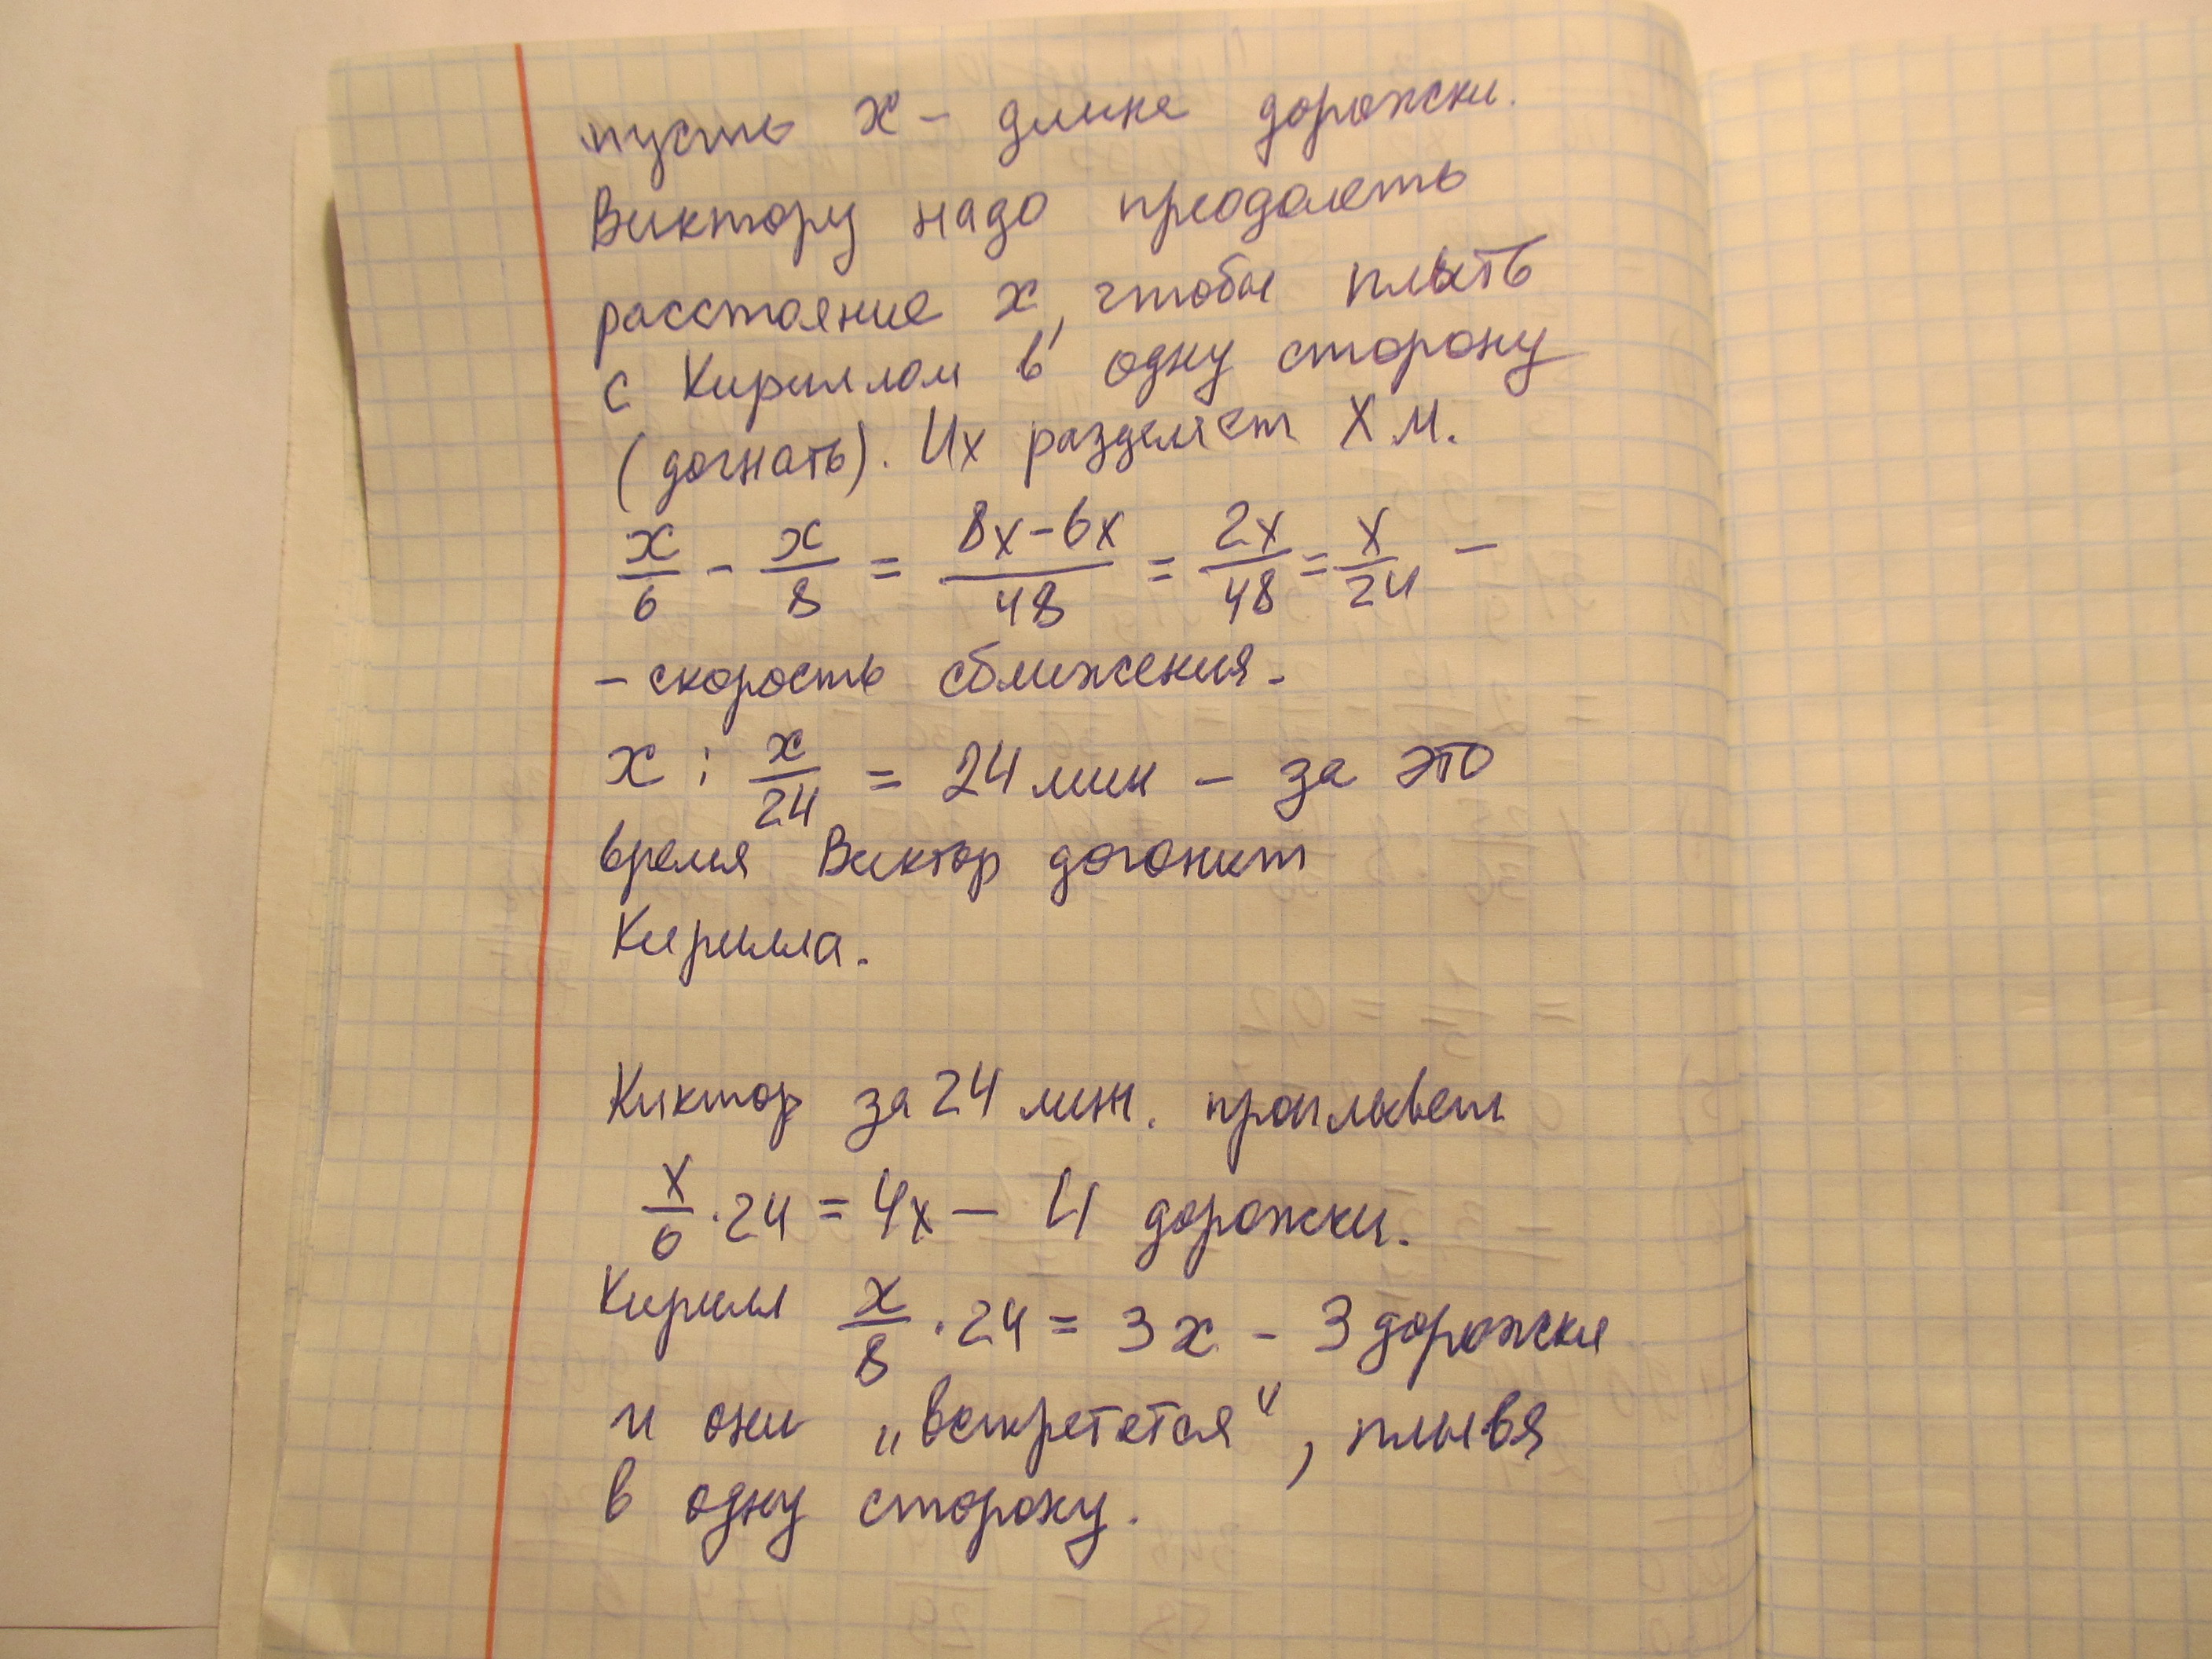 пусть x – длина дорожки.
Виктору надо преодолеть
расстояние x, чтобы плыть
с Кириллом в одну сторону
(догнать). Их разделяет X м.
x/6 - x/8 = (8x-6x)/48 = 2x/48 = x/24 –
– скорость сближения.
x : x/24 = 24 мин – за это
время Виктор догонит
Кирилла.
Киктор за 24 мин. проплывет
x/6 · 24 = 4x – 4 дорожки.
Кирилл x/8 · 24 = 3x – 3 дорожки
и они „встретятся", плывя
в одну сторону.